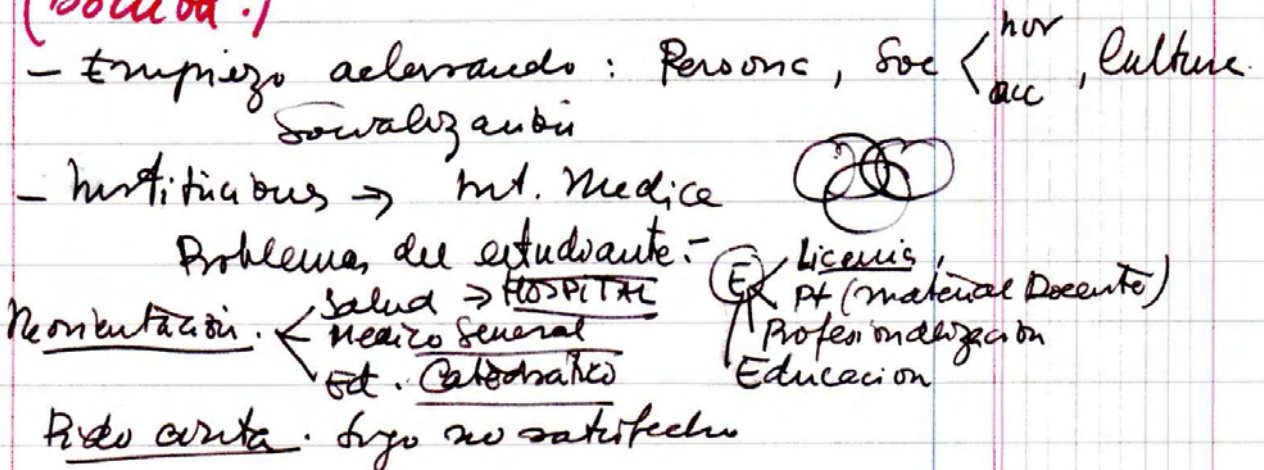 - Empiezo aclarando : Persona, Soc < nor acc , Cultura.
Socialización
- Instituciones → Int. Medica
Problemas del estudiante.-
(E) Licencis,
Pt (material Docente)
Profesionalización
Educacion
Reorientación. < Salud → HOSPITAL
Medico General
Ed. Catedratico
Pido cuenta. Sigo no satisfecho